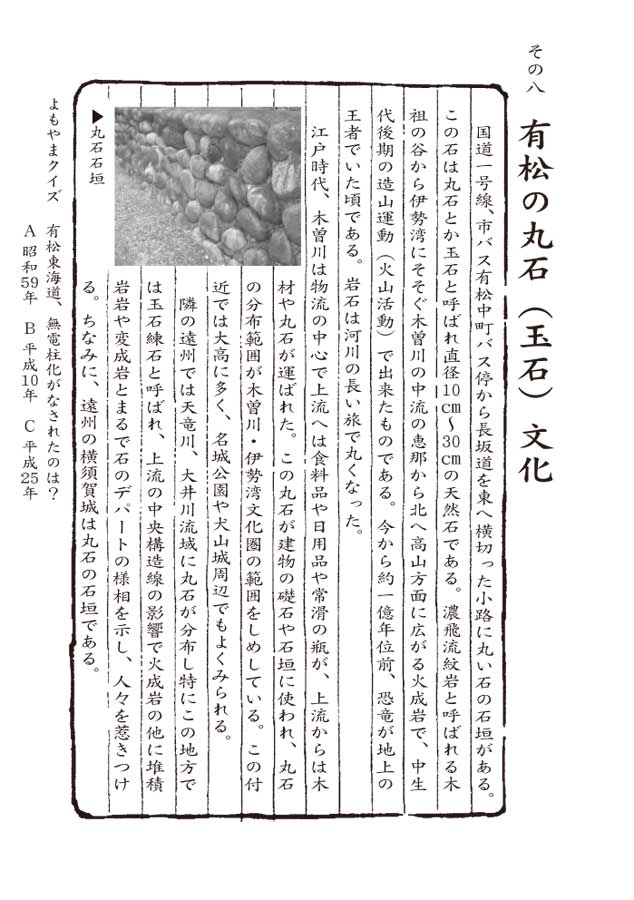 その八
有松の丸石（玉石）文化
国道一号線、市バス有松中町バス停から長坂道を東へ横切った小路に丸い石の石垣がある。
この石は丸石とか玉石と呼ばれ直径10cm～30cmの天然石である。濃飛流紋岩と呼ばれる木
祖の谷から伊勢湾にそそぐ木曽川の中流の恵那から北へ高山方面に広がる火成岩で、中生
代後期の造山運動（火山活動）で出来たものである。今から約一億年位前、恐竜が地上の
王者でいた頃である。岩石は河川の長い旅で丸くなった。
江戸時代、木曽川は物流の中心で上流へは食料品や日用品や常滑の瓶が、上流からは木
材や丸石が運ばれた。この丸石が建物の礎石や石垣に使われ、丸石
の分布範囲が木曽川・伊勢湾文化圏の範囲をしめしている。この付
近では大高に多く、名城公園や犬山城周辺でもよくみられる。
隣の遠州では天竜川、大井川流域に丸石が分布し特にこの地方で
は玉石練石と呼ばれ、上流の中央構造線の影響で火成岩の他に堆積
岩岩や変成岩とまるで石のデパートの様相を示し、人々を惹きつけ
る。ちなみに、遠州の横須賀城は丸石の石垣である。
▶丸石石垣
よもやまクイズ 有松東海道、無電柱化がなされたのは？
A 昭和59年 B 平成10年 C 平成25年